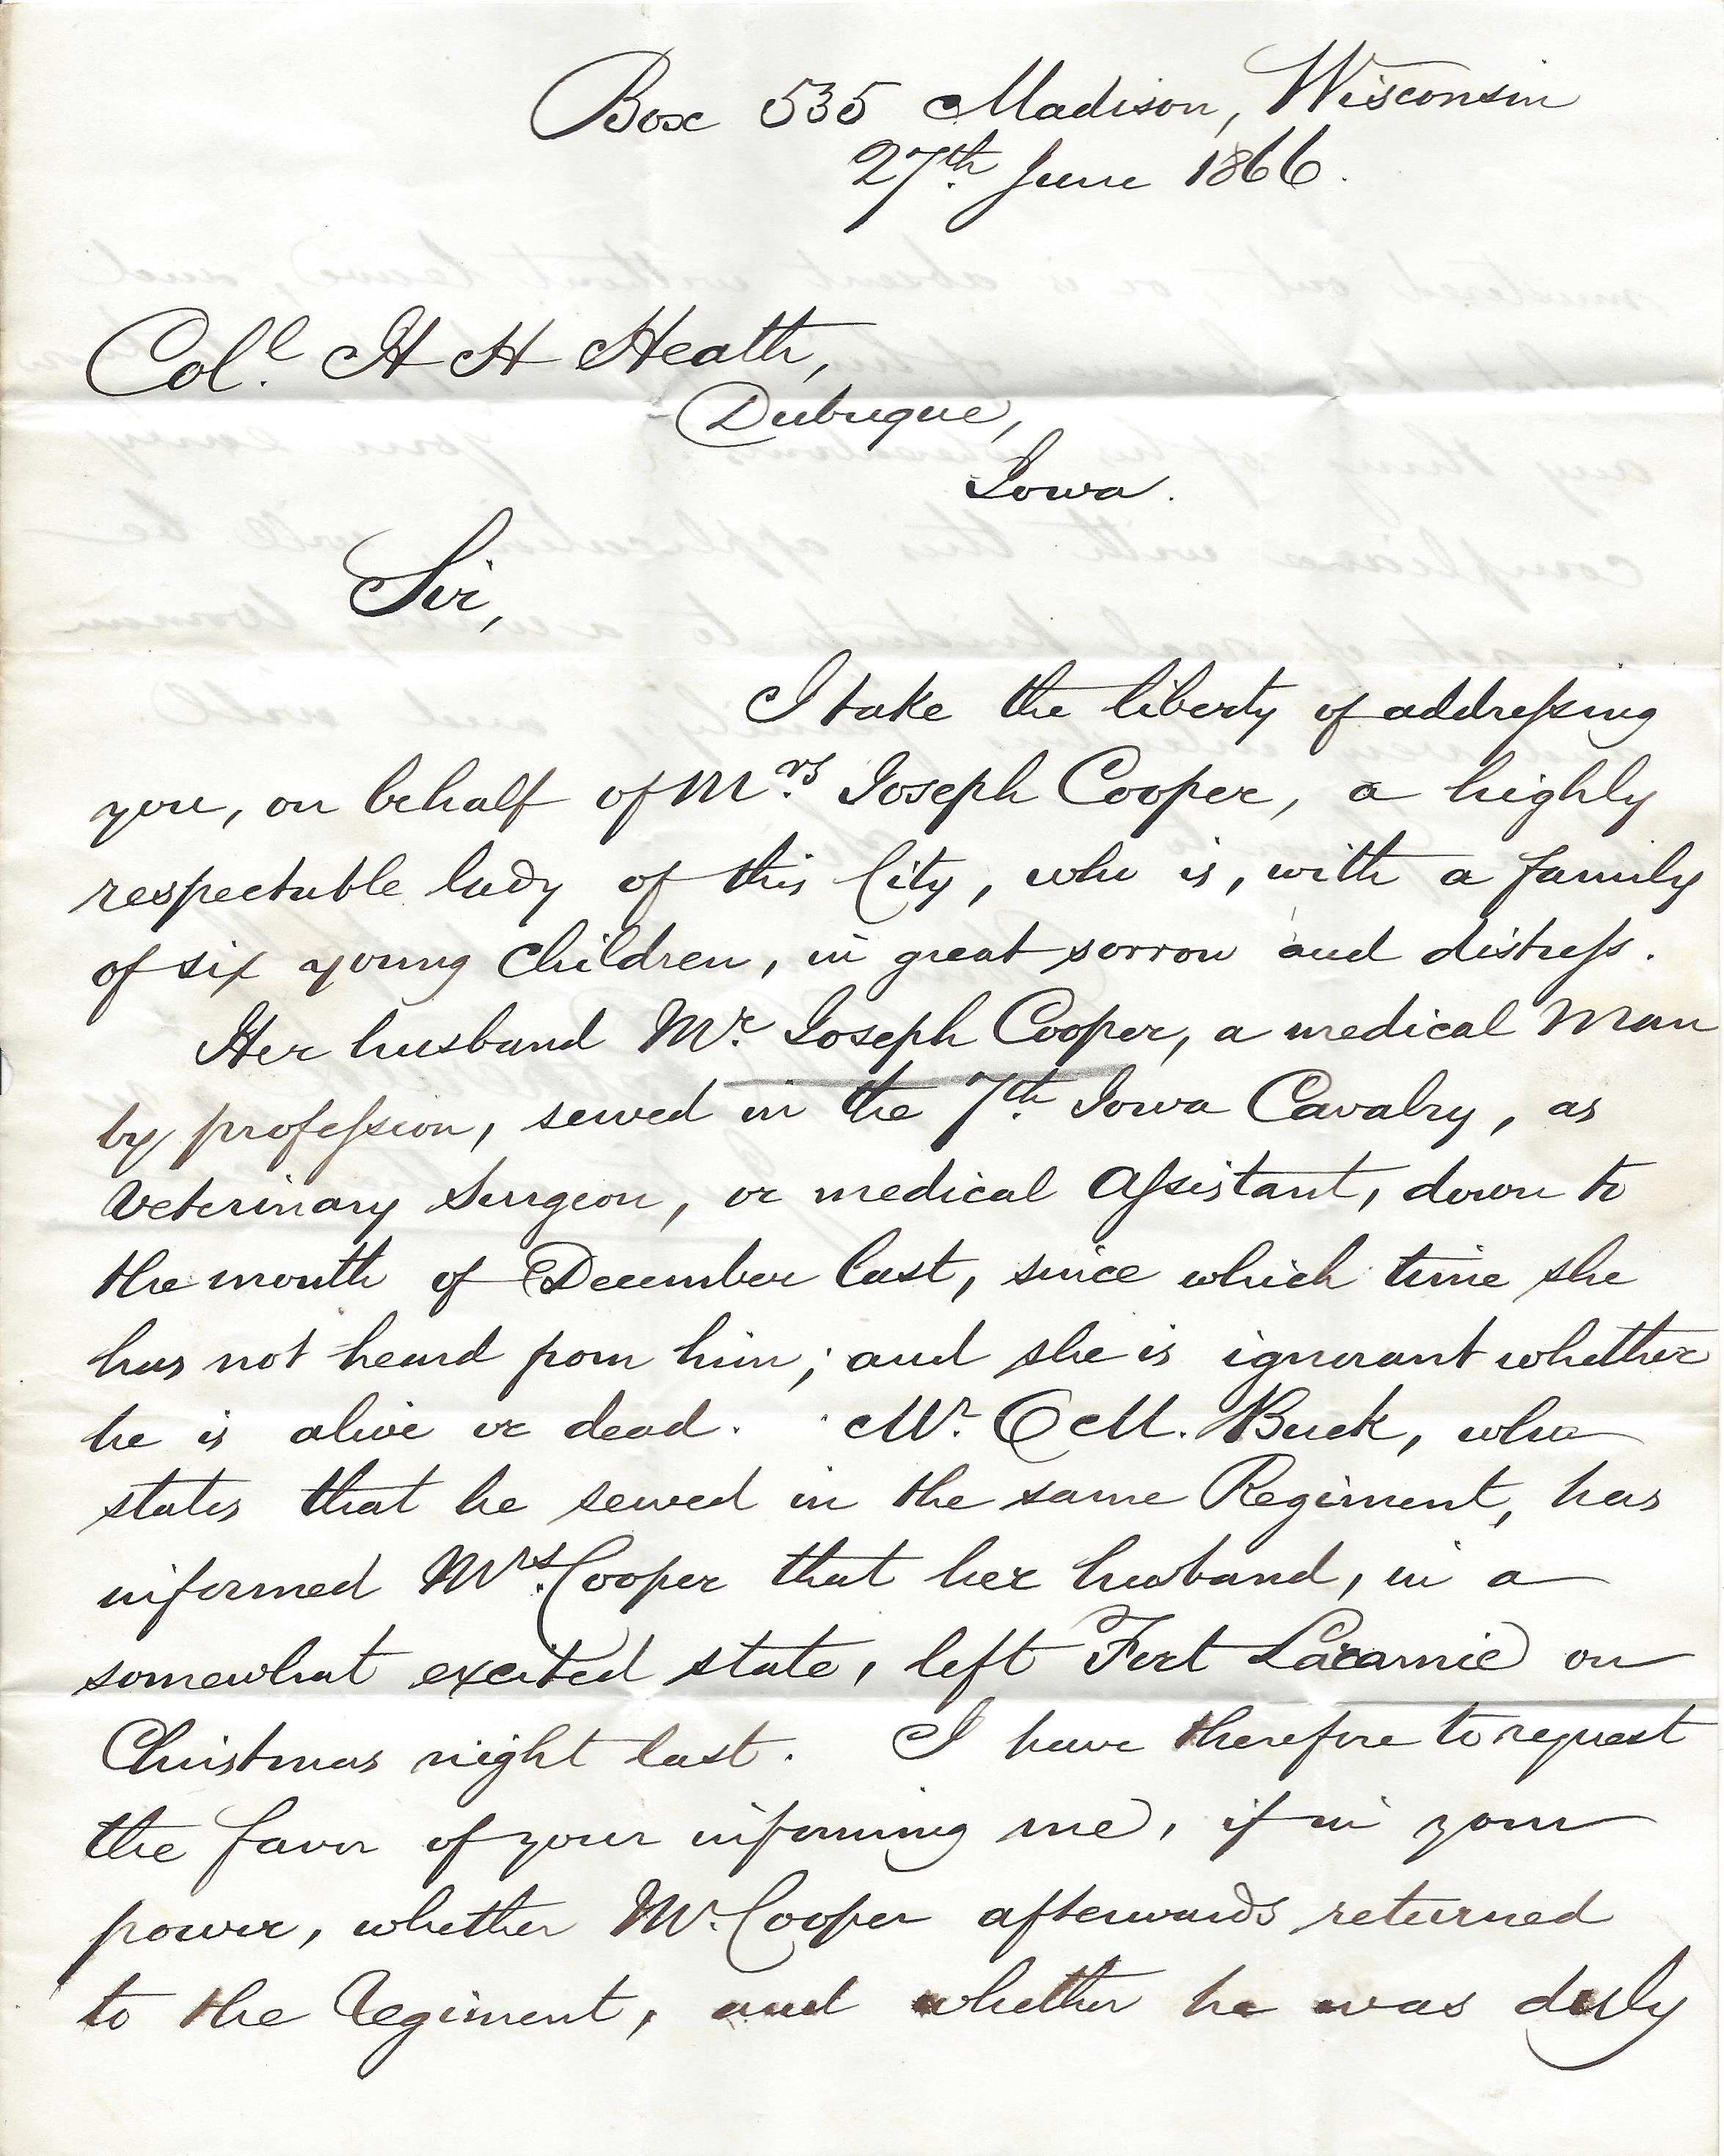 Box 535 Madison, Wisconsin
27th. June 1866.
Coll. H H Heath,
Dubuque,
Iowa.
Sir,
I take the liberty of addressing
you, on behalf of Mrs. Joseph Cooper, a highly
respectable lady of this City, who is, with a family
of six young children, in great sorrow and distress.
Her husband Mr. Joseph Cooper, a medical man
by profession, served in the 7th. Iowa Cavalry, as
Veterinary Surgeon, or medical Assistant, down to
the month of December last, since which time she
has not heard from him; and she is ignorant whether
he is alive or dead. Mr. C M. Buck, who
states that he served in the same Regiment, has
informed Mrs. Cooper that her husband, in a
somewhat excited state, left Fort on
Christmas night last. I have therefore to request
the favor of your informing me, if in your
power, whether Mr. Cooper afterwards returned
to the Regiment, and whether he was duly